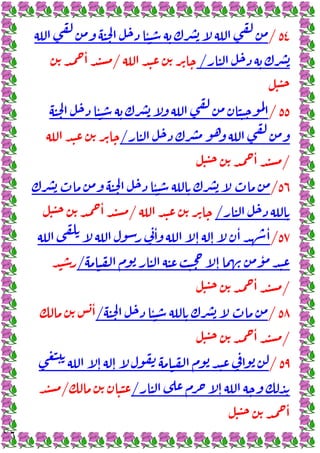 ٥٤/من لقي الله لا يشرك به شيئا دخل الجنة ومن لقي الله
يشرك به دخل النار/ جابر بن عبد الله /مسند أحمد بن
حنبل
٥٥/الموجبتان من لقي الله ولا يشرك به شيئا دخل الجنة
ومن لقي الله وهو مشرك دخل النار/جابر بن عبد الله
/مسند أحمد بن حنبل
٥٦/من مات لا يشرك بالله شيئا دخل الجنة ومن مات يشرك
بالله دخل النار/ جابر بن عبد الله /مسند أحمد بن حنبل
٥٧/أشهد أن لا إله إلا الله وأني رسول الله لا يلقى الله
عبد مؤمن بهما إلا حجبت عنه النار يوم القيامة/
/مسند أحمد بن حنبل
٥٨/من مات لا يشرك بالله شيئا دخل الجنة/أنس بن مالك
/مسند أحمد بن حنبل
٥٩/لن يوافي عبد يوم القيامة يقول لا إله إلا الله يبتغي
بذلك وجه الله إلا حرم على النار/عتبان بن مالك/مسند
أحمد بن حنبل